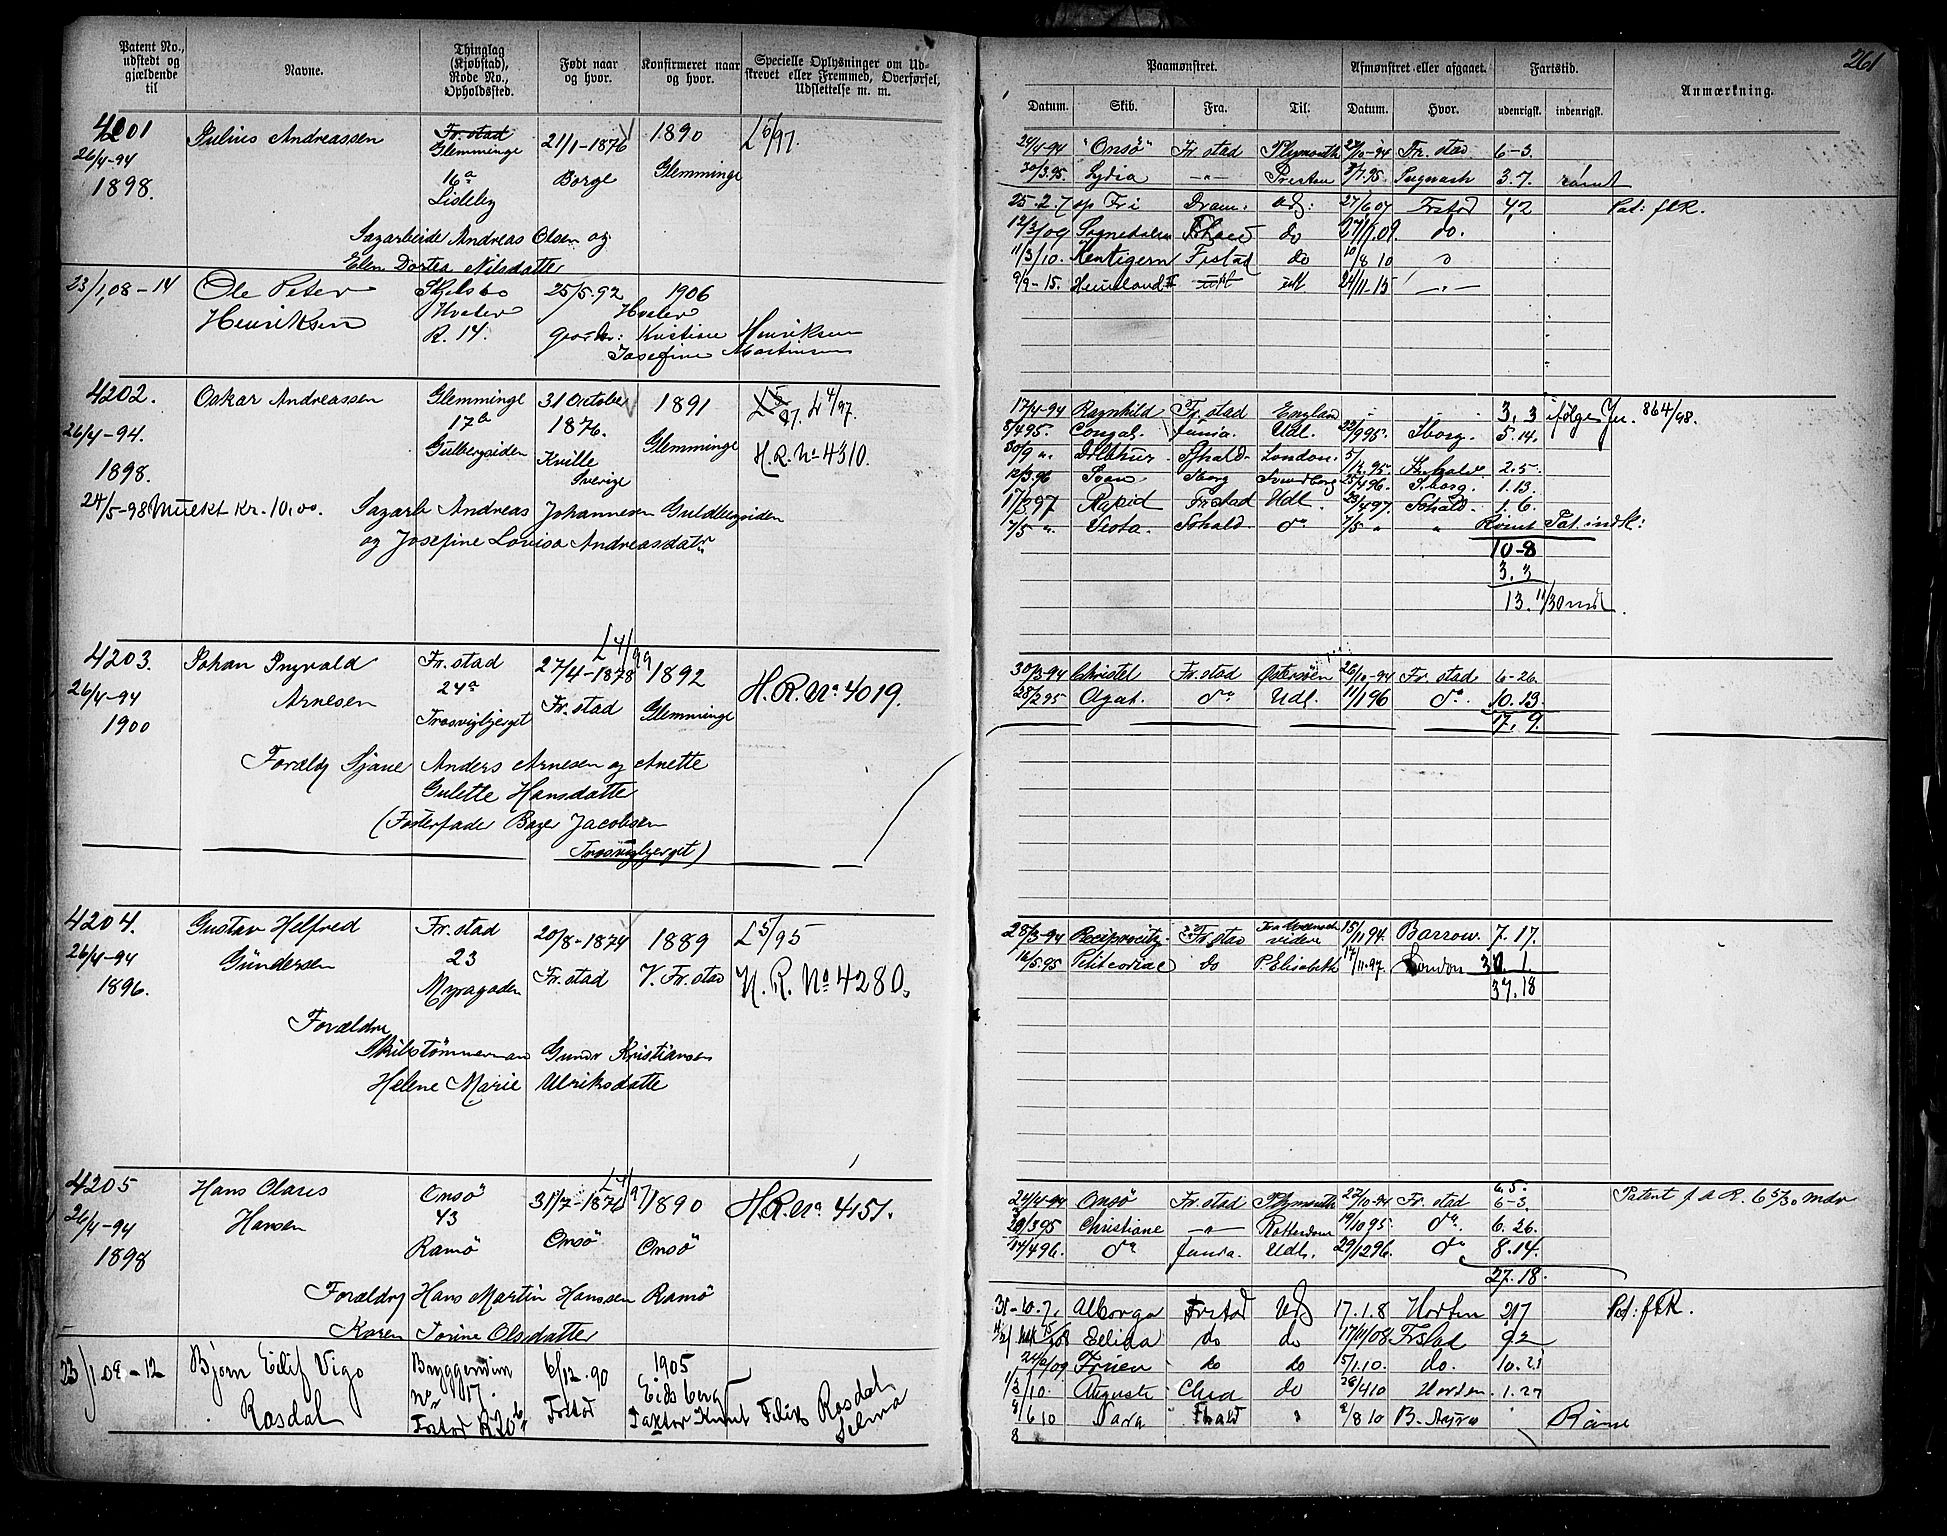 261
Patent No., udstedt og gjældende til
Navne.
Thinglag (Kjøbstad), Rode No., Opholdssted.
Født naar og hvor.
Konfirmeret naar og hvor.
Specielle Oplysninger om Udskrevet eller Fremmed, Overførsel, Udslettelse m. m.
Paamønstret.
Afmønstret eller afgaaet.
Fartstid.
Anmærkning.
Datum. Skib. Fra. Til. Datum. Hvor. udenrigsk. indenrigsk.
4201 Julius Andreassen Fr. stad 21/1-1876 1890 L 6/97.
26/4-94 Glemminge
1898. 16a Borge Glemminge
Lisleby
Sagarbeide Andreas Olsen og
Elen Dortea Nilsdatter
24/4-94 "Onsö" Fr. stad Plymouth 27/10-94 Fr. stad 6-3.
30/3.95 Lydia -"- Preston 3/7.95. 3.7. rømt
23/1,08-14 Ole Peter Hvaler 25/5.92 1906
Henriksen R. 14. Hvaler
Kristine Henriksen
Josefine Martinsen
25.2.7 op Fri Dram: Udl: 27/6 07 Frstad 4,2 Pat: flR.
12/3/09 Sognedalen Fhald do 27/1.09. do.
11/3/10. Kentigern Frstad do 10/8 10
9/9-15. Heimland II udt 24/11.15 -"-
4202. Oskar Andreassen Glemminge 31 October 1891 L 5/97. L 4/97.
26/4-94. 17a 1876.
1898. Gulbergsiden Kville Sverige Glemminge H. R. No 4310.
24/5-98 Mulkt Kr. 10,00. Sagarb Andreas Johannesen Guldbergsiden
og Josefine Lovisa Andreasdatr
17/4-94 Ragnhild Fr. stad England 3.3 ifølge Jr. 864/98.
8/4 95. Congal. Junia. Udl. 23/9 95. Sborg. 5.14.
30/9 ". Fhald London. 5/12.95. Fr.hald 2.5.
12/3.96 Svan Sborg Svendborg 25/4 96. Sborg. 1.13.
17/3 97 Rapid Fr. stad Udl. 23/4 97. 1.6.
7/5 ". Scota. do 7/5 " " Rømt Pat. indk:
10-8
3.3
13. 11/30 md.
4203. Johan Ingvald Fr. stad 27/4-1878 1892 L 4/99
26/4-94 Arnesen 24a H. R. No. 4019.
1900 Trosvigbjerget Fr. stad Glemminge
Forældr Sjøme Anders Arnesen og Anette
Gulette Hansdatter
(Fosterfader Bager Jacobsen
Trosvigbjerget)
30/3-94 Christel Fr. stad Østersøen 26/10-94 Fr. stad 6-26.
28/2 95 Agat. do Udl. 11/1 96 do. 10.13.
17. 9.
4204. Gustav Helfred Fr. stad 20/8-1874 1889 L 5/95
26/4-94 Gündersen 23
1896. Myragaden Fr. stad V. Fr. stad H. R. No 4280.
Forældre
Skibstømmermand Gundr Kristiansen
Helene Marie Ulriksdatter
28/3-94 Reciprocity. Fr. stad videre 15/11 94. Barrow. 7.17.
16/5.95 do P. Elisabeth 17/11.97. London 30. 1.
37.18
4205 Hans Olaus Onsö 31/7-1874 1890 L 4/97
26/4-94 Hansen 43 H. R. No. 4151.
1898 Ramö Onsö Onsö
Forældr Hans Martin Hanssen Ramö
Karen Torine Olsdatter
6.5.
24/4-94 Onsö Fr. stad Plymouth 27/10-94 Fr. stad 6-3. Patent f. a R. 6 5/30 mdr
29/3 95 Christiane -"- Rotterdam 19/10 95. do. 6. 26.
14/4 96. do Junia. Udl. 29/12 96. do 8.14.
27.18.
23/1.09-12 Bjørn Eilif Vigo Bryggeriveien 6/12.90 1905
Rosdal No 17. Eidsberg
Frstad R 20b Frstad Faktor Knut Filip Rosdal
Selma
31-10.7. Alborga Frstad Udl 17.1.8 Horten 2/17 Pat: flR.
Ellida do do 17/11/08. Frstad 9 2
24/2/09 do do 5/1.10. do. 10.21
1/3/10. Auguste do 28/4 10 1.27
9/6 10 Nara Fhald " 9/8 10 B. Ayres " Rømt
8